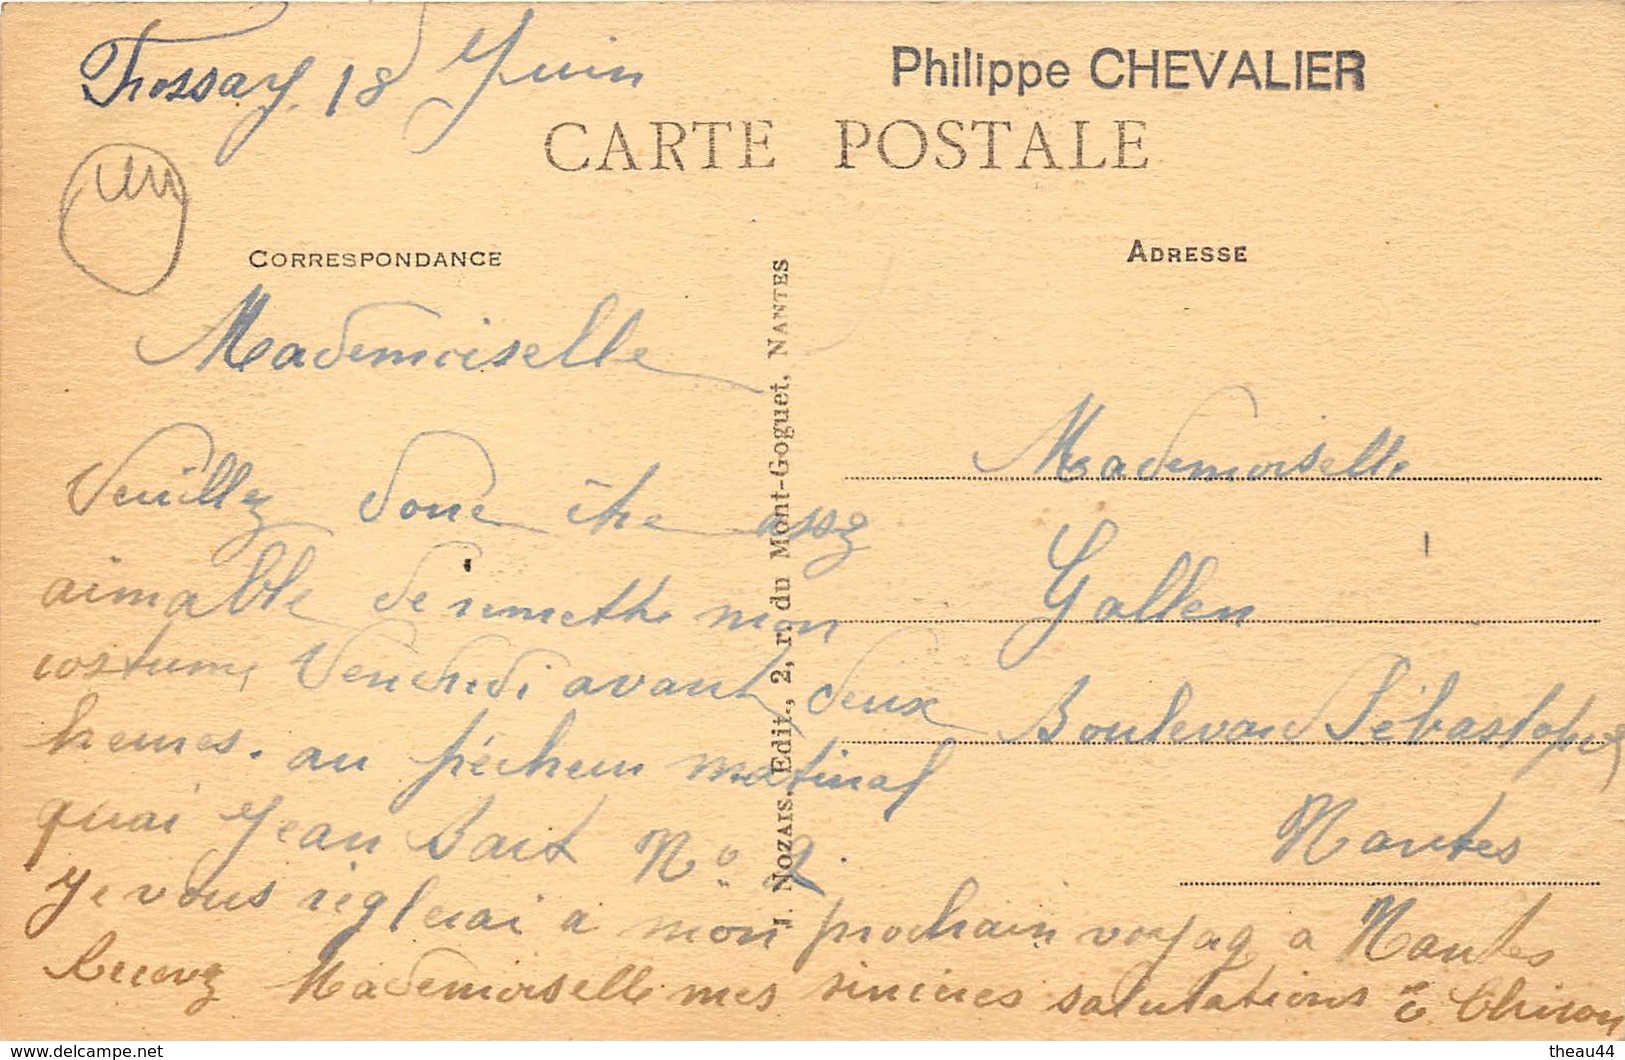 Frossay, 18 Juin
Philippe CHEVALIER
CARTE POSTALE
CORRESPONDANCE
ADRESSE
Mademoiselle
Veuillez donc être assez
aimable de remettre mon
costume, Vendredi avant deux
heures. au pécheur matinal
quai Jean Bart No 2.
Je vous réglerai a mon prochain voyage a Nantes
Recevez Mademoiselle mes sincères salutations E Chiron
J. NOZAIS, Edit., 2, r. du Mont-Goguet, NANTES
Mademoiselle
Gallen
Boulevard Sébastopol
Nantes
delcampe.net
theau44